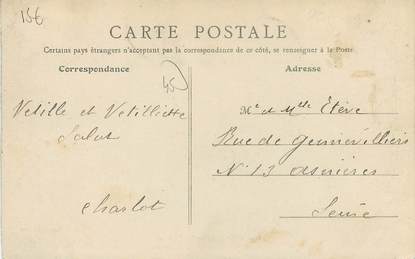 15€
CARTE POSTALE
Certains pays étrangers n'acceptent pas la correspondance de ce côté, se renseigner à la Poste
Correspondance
Adresse
45
Vetille et Vetilliette
Salut
Charlot
Me et Mlle Etève
Rue de Gennevilliers
N° 13 Asnières
Seine